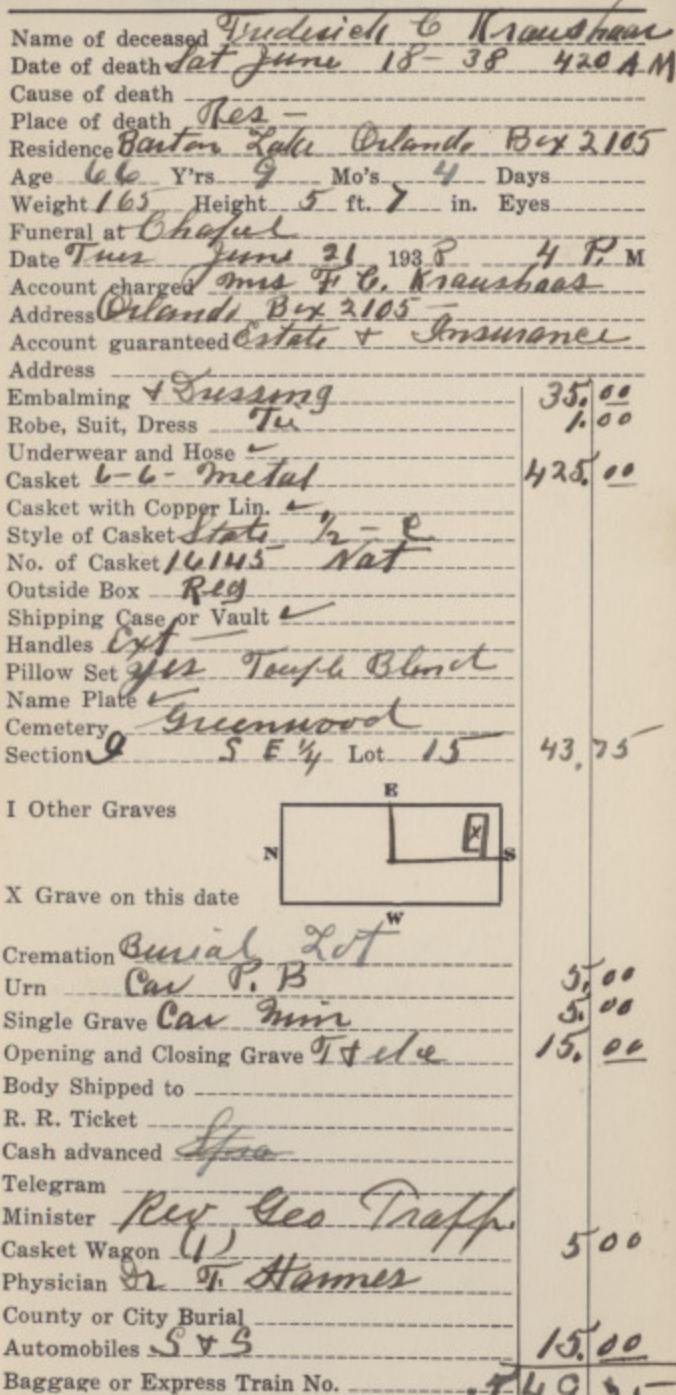 Name of deceased Frederick C Kraushaar
Date of death Sat June 18-38 420 A M
Cause of death
Place of death Res -
Residence Barton Lake Orlando Box 2105
Age 66 Y'rs 9 Mo's 4 Days
Weight 165 Height 5 ft. 7 in. Eyes
Funeral at Chapel
Date Tues June 21 1938 4 P. M
Account charged Mrs F. C. Kraushaas
Address Orlando Box 2105 -
Account guaranteed Estate + Insurance
Address
Embalming + Dressing 35.00
Robe, Suit, Dress Tie 1.00
Underwear and Hose ✓
Casket 6-6- Metal 425.00
Casket with Copper Lin. ✓
Style of Casket State 1/2 - C
No. of Casket 16145 Nat
Outside Box Reg
Shipping Case or Vault ✓
Handles Ext -
Pillow Set yes Blend
Name Plate ✓
Cemetery Greenwood
Section 9 S E 1/4 Lot 15 43.75
E
I Other Graves
N X S
X Grave on this date
W
Cremation Burial Lot
Urn Car P. B 5.00
Single Grave Car Min 5.00
Opening and Closing Grave T + 15.00
Body Shipped to
R. R. Ticket
Cash advanced
Telegram
Minister Rev Geo Trapp
Casket Wagon (1) 5 00
Physician Dr T.
County or City Burial
Automobiles S & S 15.00
Baggage or Express Train No.